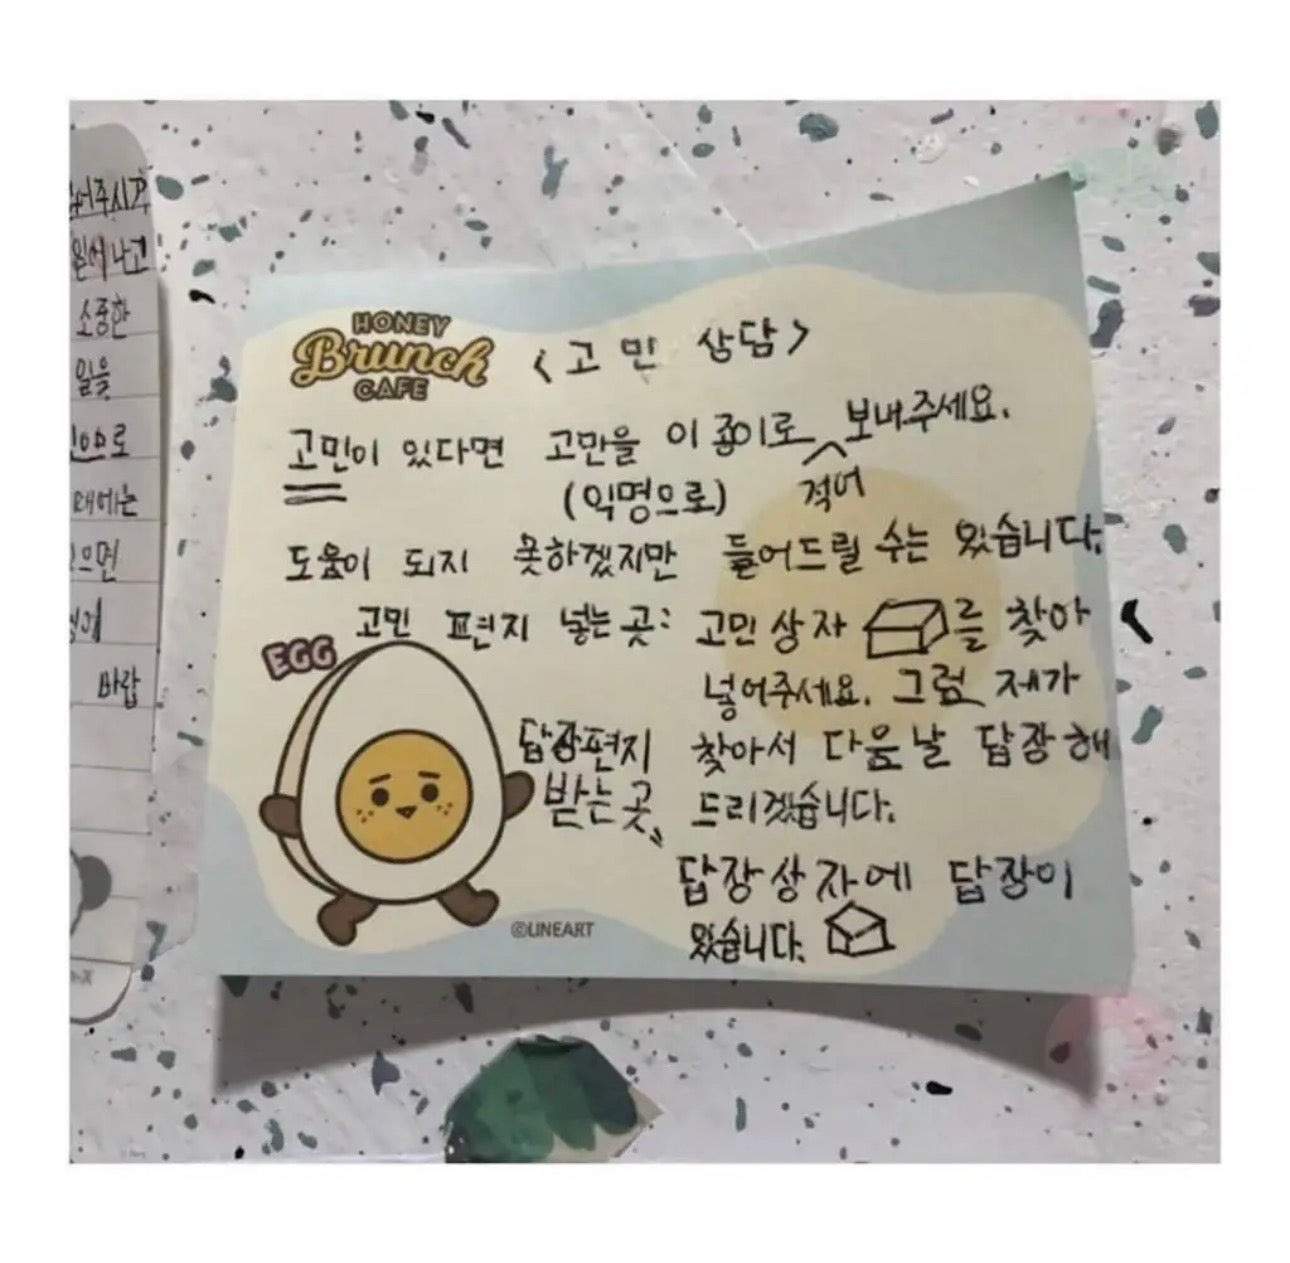 어주시
소중한
일을
으로
때에는
으면
바랍
HONEY
Brunch
CAFE
<고민 상담>
고민이 있다면 고만을 이 종이로 적어 보내주세요.
(익명으로)
도움이 되지 못하겠지만 들어드릴 수는 있습니다.
고민 편지 넣는 곳: 고민상자 를 찾아
넣어주세요. 그럼 제가
찾아서 다음날 답장해
드리겠습니다.
EGG
답장편지
받는 곳
답장상자에 답장이
있습니다.
©LINEART